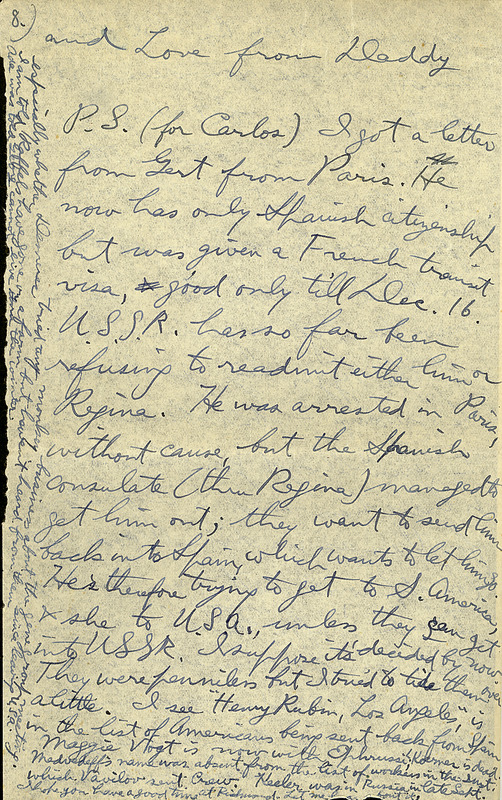 8)
and Love from Daddy
P.S. (for Carlos) I got a letter
from Gert from Paris. He
now has only Spanish citizenship
but was given a French transit
visa, good only till Dec. 16.
U.S.S.R. has so far been
refusing to readmit either him or
Regina. He was arrested in Paris,
without cause, but the Spanish
consulate (thru Regina) managed to
get him out; they want to send him
back into Spain, which wants to let him go
He's therefore trying to get to S. America
& she to U.S.A., unless they can get
into USSR. I suppose it's decided by now
They were penniless but I tried to tide them over
a little. I see "Henry Rubin, Los Angeles," is
in the list of Americans being sent back from Spain
Maggie Vogt is now with Ephrussi, Koerner is dead.
Medvedeff's name was absent from the list of workers in the Inst.
which Vavilov sent Crew. Keeler was in Russia in late Sept.
I hope you have a good time at Richmond. Let me hear about it
especially whether Demerec tried any monkey business about the genes and meeting